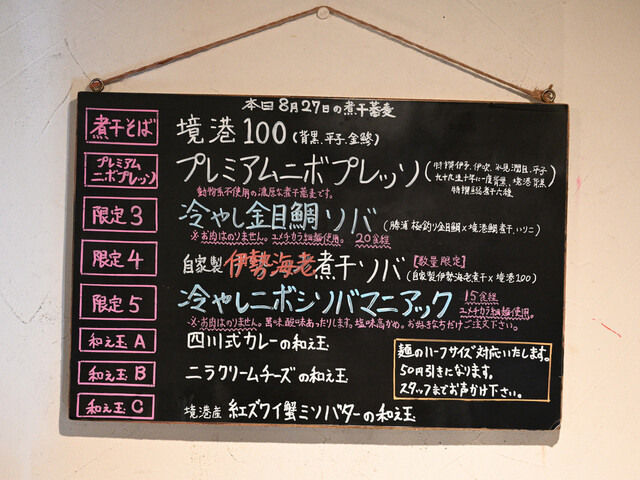 本日8月27日の煮干蕎麦
煮干そば 境港100 (背黒、平子、金鯵)
プレミアムニボプレッソ プレミアムニボプレッソ
動物系不使用の濃厚な煮干蕎麦です。
限定3 冷やし金目鯛ソバ (勝浦 樽釣り金目鯛×境港鯛煮干、いりこ)
※お肉はのりません。ユメチカラ細麺使用。 20食程
限定4 自家製伊勢海老煮干ソバ 【数量限定】
(自家製伊勢海老煮干×境港100)
限定5 冷やしニボシソバマニアック 15食程
ユメチカラ細麺使用。
※お肉はのりません。苦味酸味あったりします。塩味高かめ。お好きなうちだけご注文下さい。
和え玉A 四川式カレーの和え玉
和え玉B ニラクリームチーズの和え玉
和え玉C 境港産 紅ズワイ蟹ミソバターの和え玉
麺のハーフサイズ対応いたします。
50円引きになります。
スタッフまでお声かけ下さい。